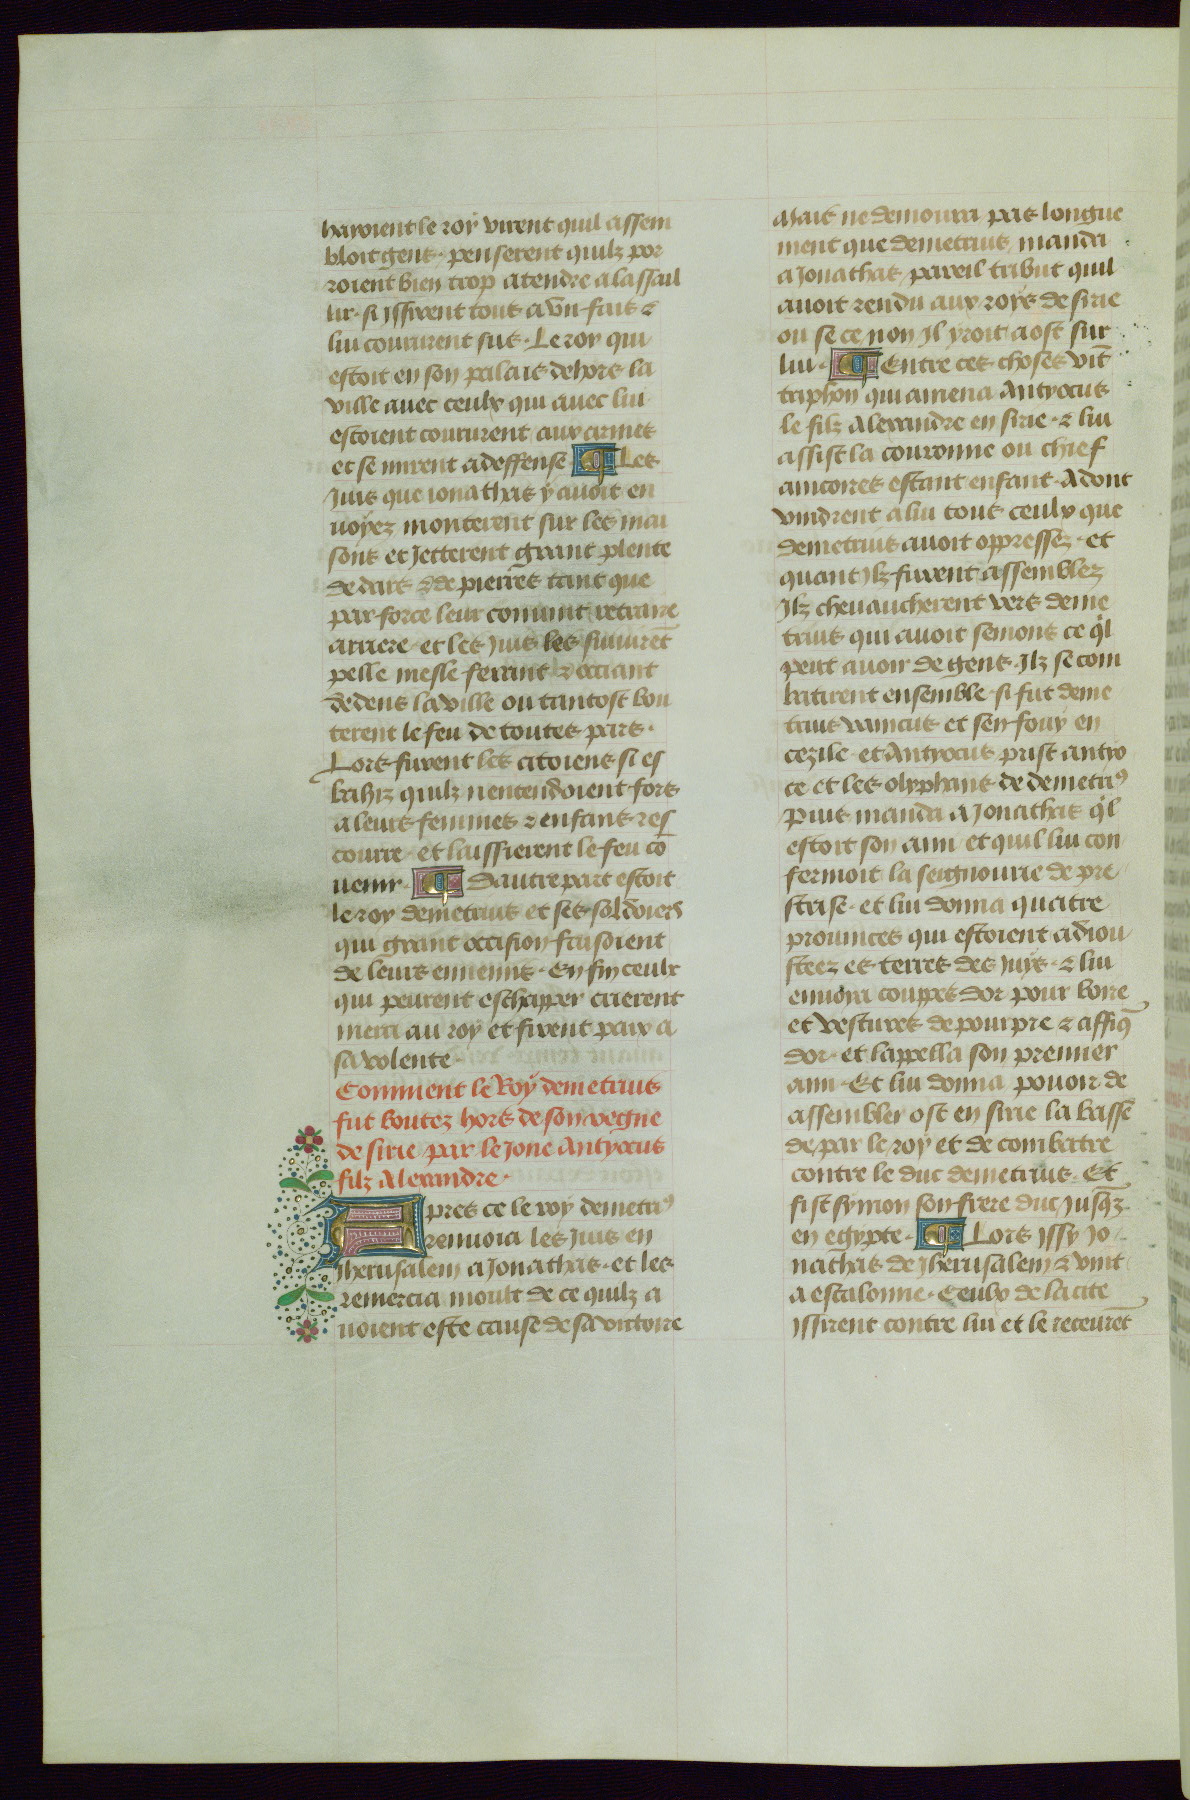 haioient le roy virent quil assem
bloit gens · penserent quilz por
roient bien trop atendre a lassail
lir · si issirent tous a vn fait &
lui coururent sus · Le roy qui
estoit en son palais dehors la
ville auec ceulx qui auec lui
estoient coururent aux armes
et se mirent a deffense ¶ Les
Juis que ionathas y auoit en
uoyez monterent sur les mai
sons et Jetterent grant plente
de dars & de pierres tant que
par force leur conuint retraire
arriere · et les Juis les suiuirēt
pelle mesle ferant & occiant
dedens la ville ou tantost bou
terent le feu de toutes pars ·
Lors furent les citoiens si es
bahiz quilz nentendoient fors
a leurs femmes & enfans res
courre · et laissierent le feu cō
uenir · ¶ Dautre part estoit
le roy demetrius et ses soldoiers
qui grant occision faisoient
de leurs ennemis · En fin ceulx
qui peurent eschapper crierent
merci au roy et firent paix a
sa volente ·
Comment le Roy demetrius
fut boutez hors de son regne
de sirie par le Jone Antyocus
filz Alexandre ·
Apres ce le roy demetriꝰ
renuoia les Juis en
Jherusalem a Jonathas · et les
remercia moult de ce quilz a
uoient este cause de sa victoire
Mais ne demoura pas longue
ment que demetrius manda
a Jonathas pareil tribut quil
auoit rendu aux roys de sirie
ou se ce non Il yroit a ost sur
lui · ¶ Entre ces choses vīt
triphon qui amena Antyocus
le filz Alexandre en sirie · & lui
assist la couronne ou chief
aincores estant enfant · Adont
vindrent a lui tous ceulx que
demetrius auoit oppressez · et
quant Ilz furent assemblez
Ilz cheuaucherent vers deme
trius qui auoit semons ce q̄l
peut auoir de gens · Ilz se com
batirent ensemble · si fut deme
trius vaincus et sen fouy en
cezile · et Antyocus prist antyo
ce et les olyphans de demetriꝰ
Puis manda a Jonathas q̄l
estoit son ami · et quil lui con
fermoit la seignourie de pre
strise · et lui donna quatre
prouinces qui estoient adiou
steez es terres des Juys · & lui
enuoia couppes dor pour boire
et vestures de pourpre & affiq̄
dor · et lappella son premier
ami · Et lui donna pouoir de
assembler ost en sirie la basse
de par le roy et de combatre
contre le duc demetrius · Et
fist symon son frere duc Jusqz
en egypte · ¶ Lors Issy Jo
nathas de Jherusalem & vint
a escalonne · Ceulx de la cite
Issirent contre lui et le receurēt